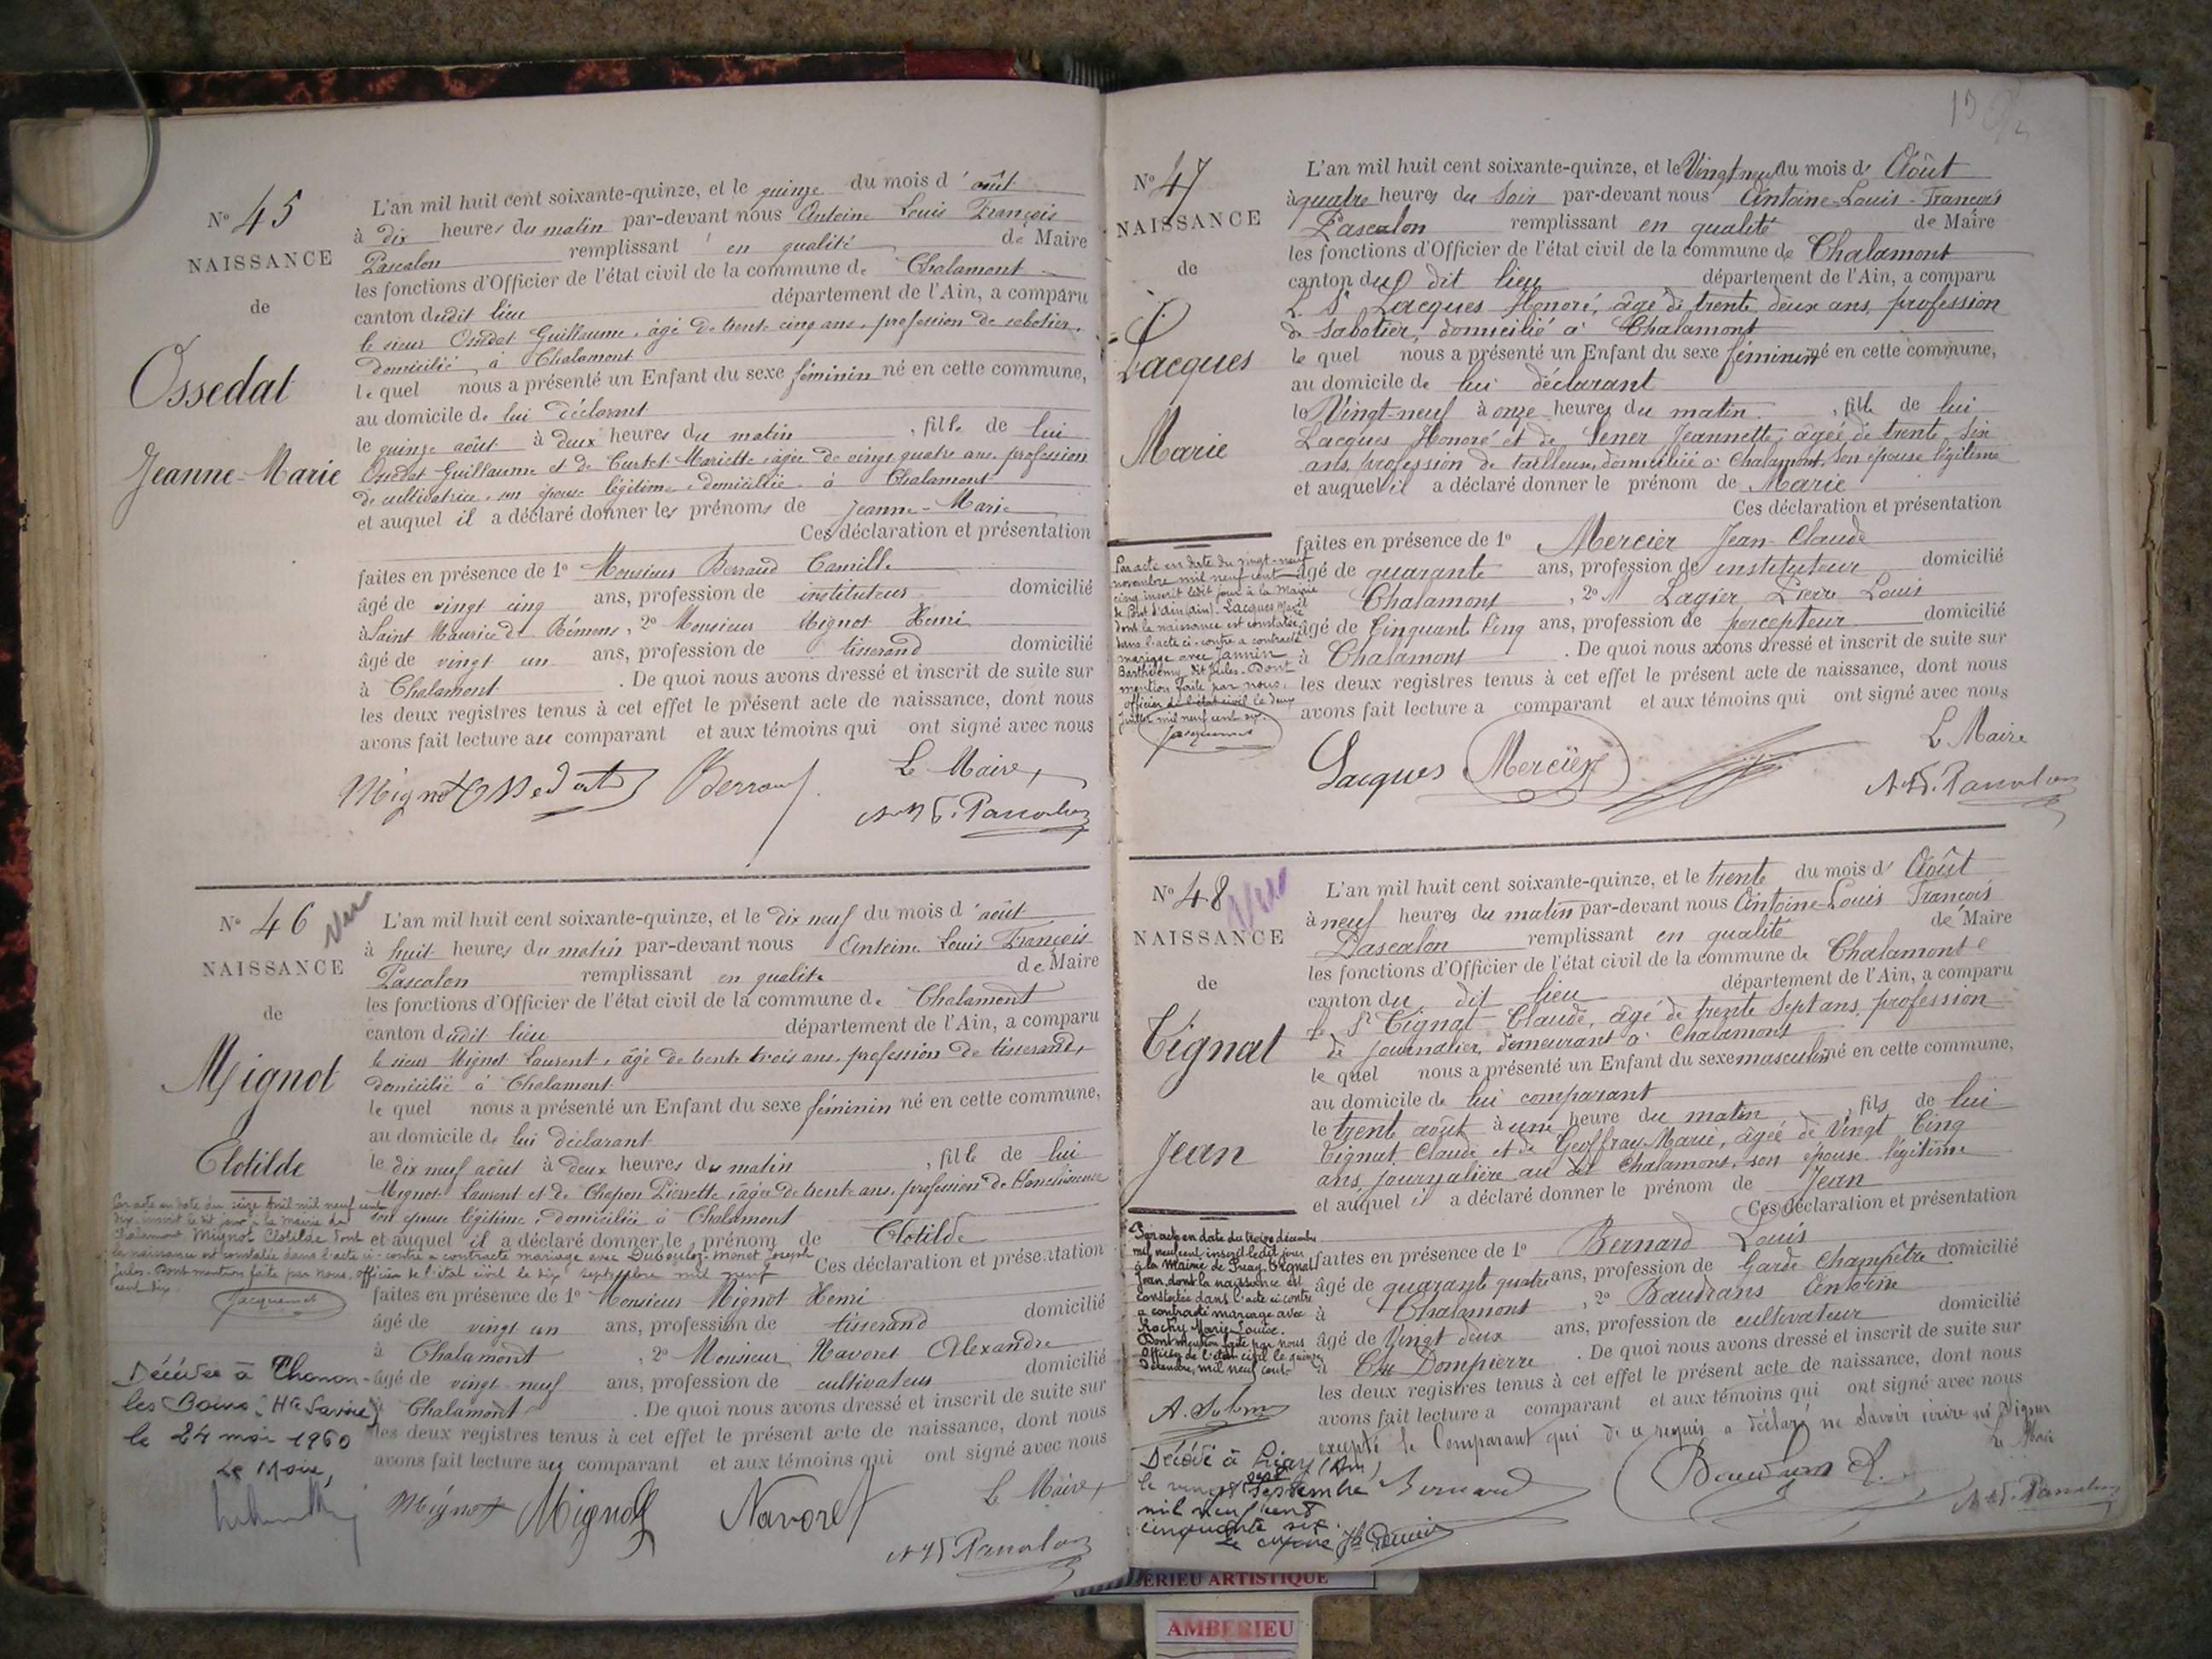 N° 45
NAISSANCE
de
Ossedat
Jeanne-Marie
L'an mil huit cent soixante-quinze, et le quinze du mois d'août
à dix heures du matin par-devant nous Antoine Louis François
Pascalon remplissant en qualité de Maire
les fonctions d'Officier de l'état civil de la commune de Chalamont
canton dudit lieu département de l'Ain, a comparu
le sieur Ossedat Guillaume, âgé de trente cinq ans, profession de sabotier,
domicilié à Chalamont
lequel nous a présenté un Enfant du sexe féminin né en cette commune,
au domicile de lui déclarant
le quinze août à deux heures du matin, fille de lui
Ossedat Guillaume et de Curtet Mariette, âgée de vingt quatre ans, profession
de cultivatrice, son épouse légitime, domiciliée à Chalamont
et auquel il a déclaré donner les prénoms de Jeanne-Marie
Ces déclaration et présentation
faites en présence de 1° Monsieur Berraud Camille
âgé de vingt cinq ans, profession de instituteur domicilié
à Saint Maurice de Rémens, 2° Monsieur Mignot Henri
âgé de vingt un ans, profession de tisserand domicilié
à Chalamont. De quoi nous avons dressé et inscrit de suite sur
les deux registres tenus à cet effet le présent acte de naissance, dont nous
avons fait lecture au comparant et aux témoins qui ont signé avec nous
Mignot Ossedat Berraud
Le Maire,
Pascalon
N° 46
Vu
NAISSANCE
de
Mignot
Clotilde
L'an mil huit cent soixante-quinze, et le dix neuf du mois d'août
à huit heures du matin par-devant nous Antoine Louis François
Pascalon remplissant en qualité de Maire
les fonctions d'Officier de l'état civil de la commune de Chalamont
canton dudit lieu département de l'Ain, a comparu
le sieur Mignot Laurent, âgé de trente trois ans, profession de tisserand,
domicilié à Chalamont
lequel nous a présenté un Enfant du sexe féminin né en cette commune,
au domicile de lui déclarant
le dix neuf août à deux heures du matin, fille de lui
Mignot Laurent et de Chapon Pierrette, âgée de trente ans, profession de
son épouse légitime, domiciliée à Chalamont
et auquel il a déclaré donner le prénom de Clotilde
Ces déclaration et présentation
faites en présence de 1° Monsieur Mignot Henri
âgé de vingt un ans, profession de tisserand domicilié
à Chalamont, 2° Monsieur Navoret Alexandre
âgé de vingt neuf ans, profession de cultivateur domicilié
à Chalamont. De quoi nous avons dressé et inscrit de suite sur
les deux registres tenus à cet effet le présent acte de naissance, dont nous
avons fait lecture au comparant et aux témoins qui ont signé avec nous
Par acte en date du seize avril mil neuf cent
dix inscrit le dit jour à la mairie de
Chalamont Mignot Clotilde dont
la naissance est constatée dans l'acte ci-contre a contracté mariage avec Dubouloz-Monet Joseph
Jules. Dont mention faite par nous, officier de l'état civil le dix septembre mil neuf
cent dix.
Jacquemet
Décédée à Thonon-
les Bains (Hte Savoie)
le 24 mai 1960
Le Maire,
Mignot Mignot Navoret
Le Maire,
Pascalon
N° 47
NAISSANCE
de
Lacques
Marie
L'an mil huit cent soixante-quinze, et le Vingt neuf du mois d'Août
à quatre heures du soir par-devant nous Antoine-Louis-François
Pascalon remplissant en qualité de Maire
les fonctions d'Officier de l'état civil de la commune de Chalamont
canton du dit lieu département de l'Ain, a comparu
L. Sr Lacques Honoré, âgé de trente deux ans, profession
de Sabotier, domicilié à Chalamont
lequel nous a présenté un Enfant du sexe féminin né en cette commune,
au domicile de lui déclarant
le Vingt-neuf à onze heures du matin, fille de lui
Lacques Honoré et de Sener Jeannette, âgée de trente six
ans, profession de tailleuse, domiciliée à Chalamont, son épouse légitime
et auquel il a déclaré donner le prénom de Marie
Ces déclaration et présentation
faites en présence de 1° Mercier Jean-Claude
âgé de quarante ans, profession de instituteur domicilié
Chalamont, 2° M Lagier Pierre Louis
âgé de Cinquante Cinq ans, profession de percepteur domicilié
à Chalamont. De quoi nous avons dressé et inscrit de suite sur
les deux registres tenus à cet effet le présent acte de naissance, dont nous
avons fait lecture a comparant et aux témoins qui ont signé avec nous
Par acte en date du vingt-neuf
novembre mil neuf cent
cinq inscrit ledit jour à la Mairie
de Pont d'Ain (Ain). Lacques Marie
dont la naissance est constatée
dans l'acte ci-contre a contracté
mariage avec Jannin
Barthélemy dit Jules. Dont
mention faite par nous,
officier de l'état civil le deux
juillet mil neuf cent six.
Jacquemet
Lacques Mercier
Le Maire
Pascalon
N° 48
Vu
NAISSANCE
de
Tignat
Jean
L'an mil huit cent soixante-quinze, et le trente du mois d'Août
à neuf heures du matin par-devant nous Antoine-Louis François
Pascalon remplissant en qualité de Maire
les fonctions d'Officier de l'état civil de la commune de Chalamont
canton du dit lieu département de l'Ain, a comparu
le Sr Tignat Claude, âgé de trente Sept ans, profession
de journalier, demeurant à Chalamont
lequel nous a présenté un Enfant du sexe masculin né en cette commune,
au domicile de lui comparant
le trente août à une heure du matin, fils de lui
Tignat Claude et de Geoffray Marie, âgée de Vingt Cinq
ans, journalière au dit Chalamont, son épouse légitime
et auquel il a déclaré donner le prénom de Jean
Ces déclaration et présentation
faites en présence de 1° Bernard Louis
âgé de quarante quatre ans, profession de Garde Champêtre domicilié
à Chalamont, 2° Baudrans Antoine
âgé de Vingt deux ans, profession de cultivateur domicilié
à Dompierre. De quoi nous avons dressé et inscrit de suite sur
les deux registres tenus à cet effet le présent acte de naissance, dont nous
avons fait lecture a comparant et aux témoins qui ont signé avec nous
excepté le Comparant qui de ce requis a déclaré ne savoir écrire ni signer
Par acte en date du treize décembre
mil neuf cent, inscrit ledit jour
à la Mairie de Priay, Tignat
Jean, dont la naissance est
constatée dans l'acte ci-contre
a contracté mariage avec
Rochy Marie Louise.
Dont mention faite par nous
Officier de l'état civil le quinze
Décembre, mil neuf cent.
Décédé à Priay (Ain)
le vingt sept septembre
mil neuf cent
cinquante six.
Le Maire
Bernard
Le Maire
Pascalon
AMBERIEU ARTISTIQUE
AMBERIEU